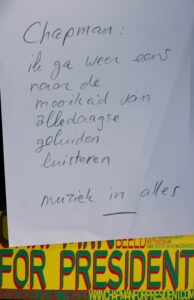 Chapman:
ik ga weer eens
naar de
mooiheid van
alledaagse
geluiden
luisteren
muziek in alles
FOR PRESIDENT
WWW.CHAPMANFORPRESIDENT.COM